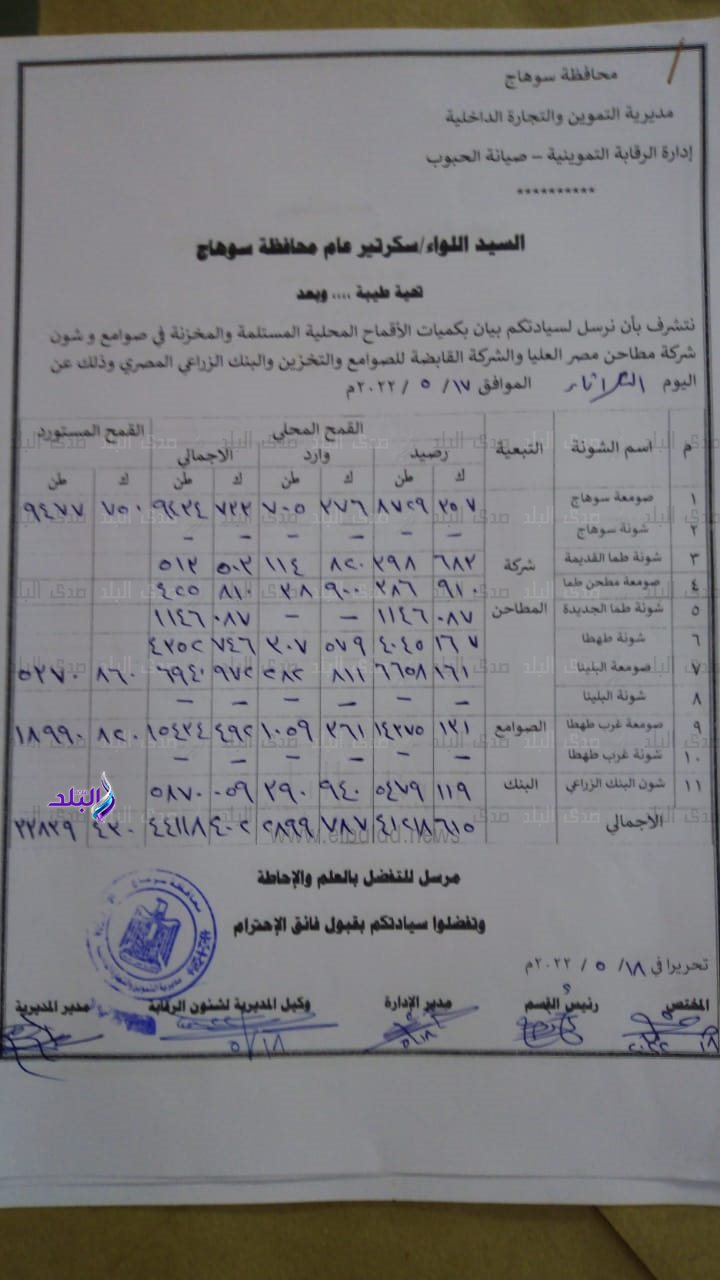 محافظة سوهاج
مديرية التموين والتجارة الداخلية
إدارة الرقابة التموينية – صيانة الحبوب
**********
السيد اللواء/سكرتير عام محافظة سوهاج
تحية طيبة .... وبعد
نتشرف بأن نرسل لسيادتكم بيان بكميات الأقماح المحلية المستلمة والمخزنة في صوامع و شون
شركة مطاحن مصر العليا والشركة القابضة للصوامع والتخزين والبنك الزراعي المصري وذلك عن
اليوم الثلاثاء الموافق ١٧/ ٥ / ٢٠٢٢م
م اسم الشونة التبعية القمح المحلي القمح المستورد
رصيد وارد الاجمالي
ك طن ك طن ك طن ك طن
١ صومعة سوهاج ٣٥٧ ٨٧٢٩ ٣٧٦ ٧٠٥ ٧٣٣ ٩٤٣٤ ٧٥٠ ٩٤٧٧
٢ شونة سوهاج – – – – – –
٣ شونة طما القديمة شركة ٦٨٣ ٣٩٨ ٨٢٠ ١١٤ ٥٠٣ ٥١٣
٤ صومعة مطحن طما ٩١٠ ٣٨٦ ٩٠٠ ٣٨ ٨١٠ ٤٢٥
٥ شونة طما الجديدة المطاحن ٠٨٧ ١١٤٦ – – ٠٨٧ ١١٤٦
٦ شونة طهطا ١٦٧ ٤٠٤٥ ٥٧٩ ٣٠٧ ٧٤٦ ٤٣٥٢
٧ صومعة البلينا ١٦١ ٦٦٥٨ ٨١١ ٢٨٢ ٩٧٢ ٦٩٤٠ ٨٦٠ ٥٣٧٠
٨ شونة البلينا – – – – – –
٩ صومعة غرب طهطا الصوامع ١٣١ ١٤٣٧٥ ٣٦١ ١٠٥٩ ٤٩٢ ١٥٤٣٤ ٨٢٠ ١٨٩٩٠
١٠ شونة غرب طهطا – – – – – –
١١ شون البنك الزراعي البنك ١١٩ ٥٤٧٩ ٩٤٠ ٣٩٠ ٠٥٩ ٥٨٧٠
الاجمالي ٦١٥ ٤١٢١٨ ٧٨٧ ٢٨٩٩ ٤٠٢ ٤٤١١٨ ٤٣٠ ٣٣٨٣٩
مرسل للتفضل بالعلم والإحاطة
وتفضلوا سيادتكم بقبول فائق الإحترام
تحريرا في ١٨/ ٥ / ٢٠٢٢م
المختص رئيس القسم مدير الإدارة وكيل المديرية لشئون الرقابة مدير المديرية
٥/١٨ ٥/١٨
صدى البلد
www.elbalad.news
محافظة سوهاج